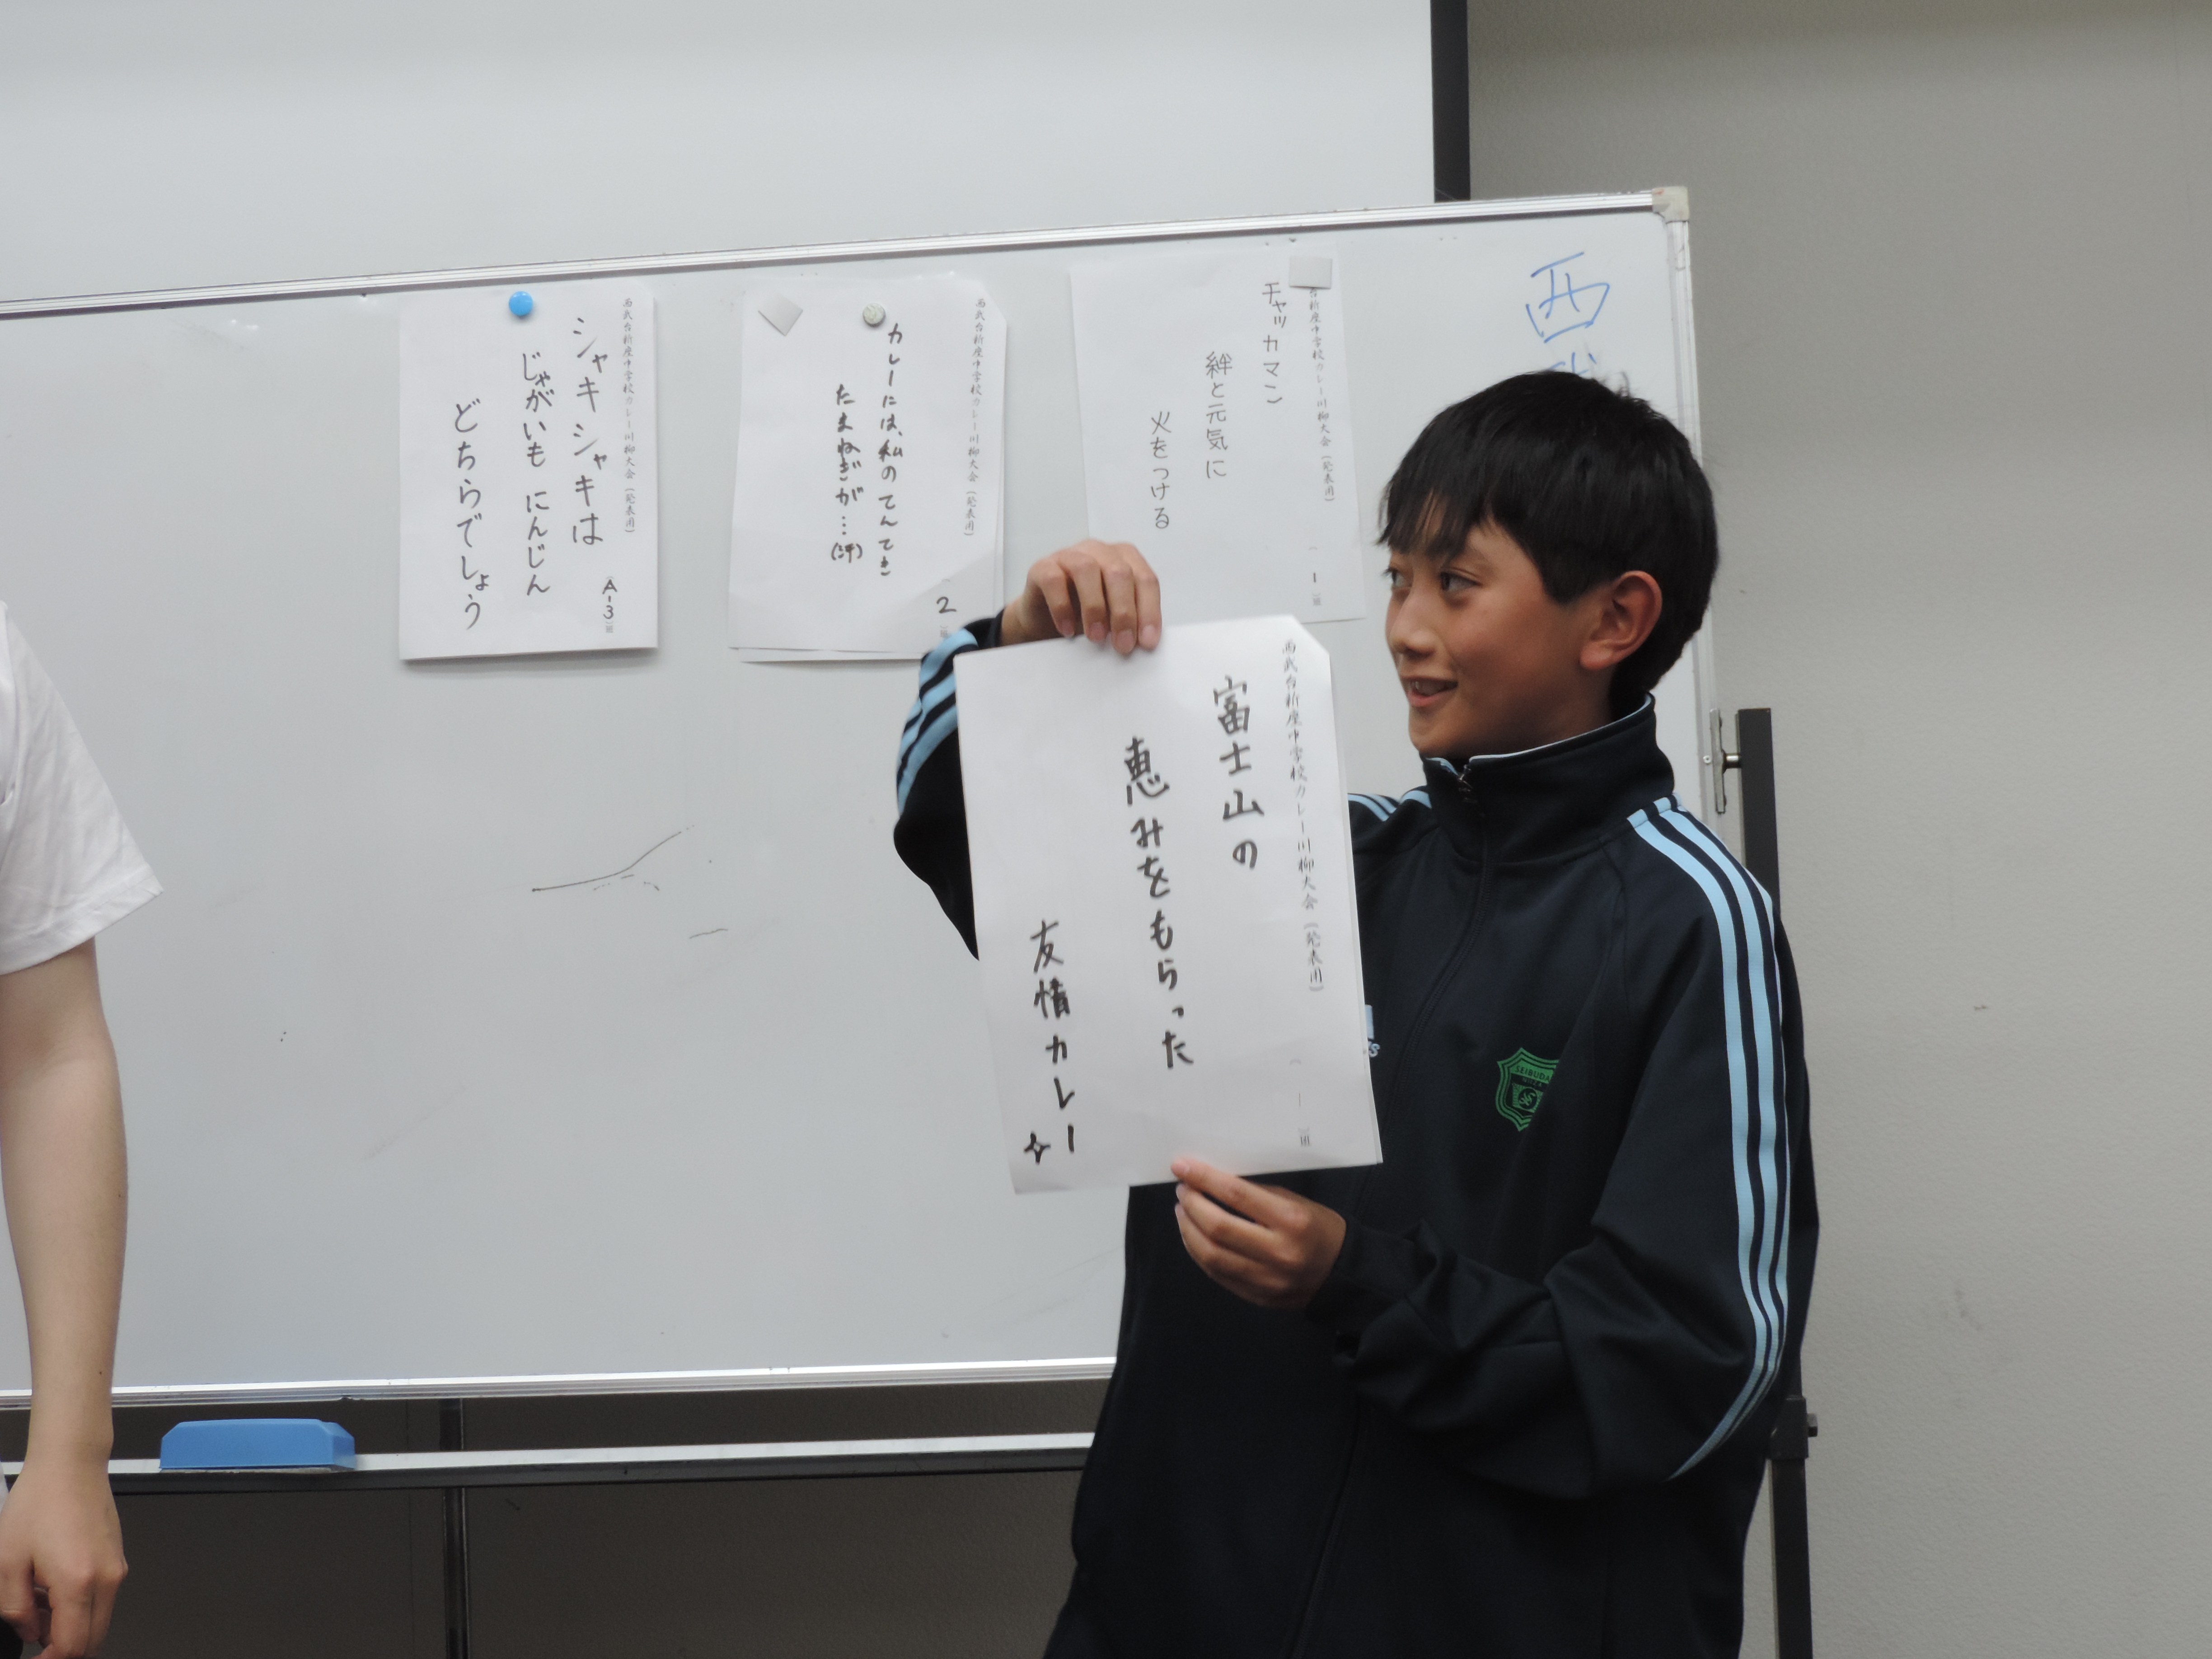 西武台新座中学校カレー川柳大会（発表用）
富士山の
恵みをもらった
友情カレー
（ 一 ）班
台新座中学校カレー川柳大会（発表用）
チャッカマン
絆と元気に
火をつける
（ 1 ）班
西武台新座中学校カレー川柳大会（発表用）
カレーには、私のてんてき
たまねぎが…(汗)
2
西武台新座中学校カレー川柳大会（発表用）
シャキシャキは
じゃがいも にんじん
どちらでしょう
A-3）班
西
SEIBUDAI